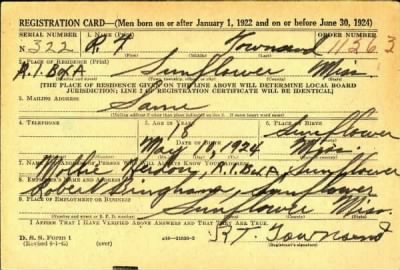 REGISTRATION CARD—(Men born on or after January 1, 1922 and on or before June 30, 1924)
SERIAL NUMBER 1. NAME (Print) ORDER NUMBER
N 322 R. T. Townsend 11263
2. PLACE OF RESIDENCE (Print)
R.1. Box A Sunflower Miss.
[THE PLACE OF RESIDENCE GIVEN ON THE LINE ABOVE WILL DETERMINE LOCAL BOARD
JURISDICTION; LINE 2 OF REGISTRATION CERTIFICATE WILL BE IDENTICAL]
3. MAILING ADDRESS
Same
4. TELEPHONE 5. AGE IN YEARS 6. PLACE OF BIRTH
18 Sunflower
DATE OF BIRTH
May 11, 1924 Miss.
7. NAME AND ADDRESS OF PERSON WHO WILL ALWAYS KNOW YOUR ADDRESS
R.1. Box A, Sunflower
8. EMPLOYER'S NAME AND ADDRESS
Robert Sunflower
9. PLACE OF EMPLOYMENT OR BUSINESS
Sunflower Miss.
I AFFIRM THAT I HAVE VERIFIED ABOVE ANSWERS AND THAT THEY ARE TRUE.
D. S. S. FORM 1
R.T. Townsend
(Registrant's signature)